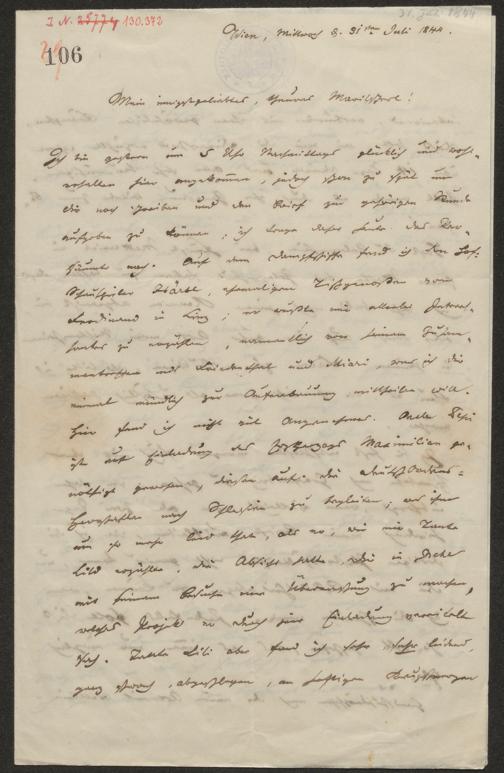 I. N. 130.372
31. Juli 1844
106
Wien, Mittwoch d. 31ten Juli 1844.
Mein innigstgeliebtes, theures !
Ich bin gestern um 5 Uhr Nachmittags glücklich und wohl-
erhalten hier angekommen, jedoch schon zu spät um
dir noch schreiben und den Brief zur gehörigen Stunde
aufgeben zu können; ich trage dieses heute das Ver-
säumte nach. Auf dem Dampfschiffe fand ich den Hof-
schauspieler , ehemaligen Tischgenossen von
Ferdinand in Linz; er wußte mir allerlei Interes-
santes zu erzählen, namentlich von seinem Zusam-
mentreffen mit und , was ich dir
einmal mündlich zur Auferbauung mittheilen will.
Hier fand ich nicht viel Angenehmes. Onkel
ist auf Einladung des Erzherzogs Maximilian ge-
nöthigt gewesen, diesen auf die Deutschordens-
herrschaften nach Schlesien zu begleiten; was ihm
um so mehr leid that, als er, wie mir Tante
Lili erzählte, die Absicht hatte, dir in
mit seinem Besuche eine Überraschung zu machen,
welches Projekt er durch jene Einladung vereitelt
sah. Tante Lili aber fand ich sehr sehr leidend,
ganz schwach, abgeschlagen, an heftigen